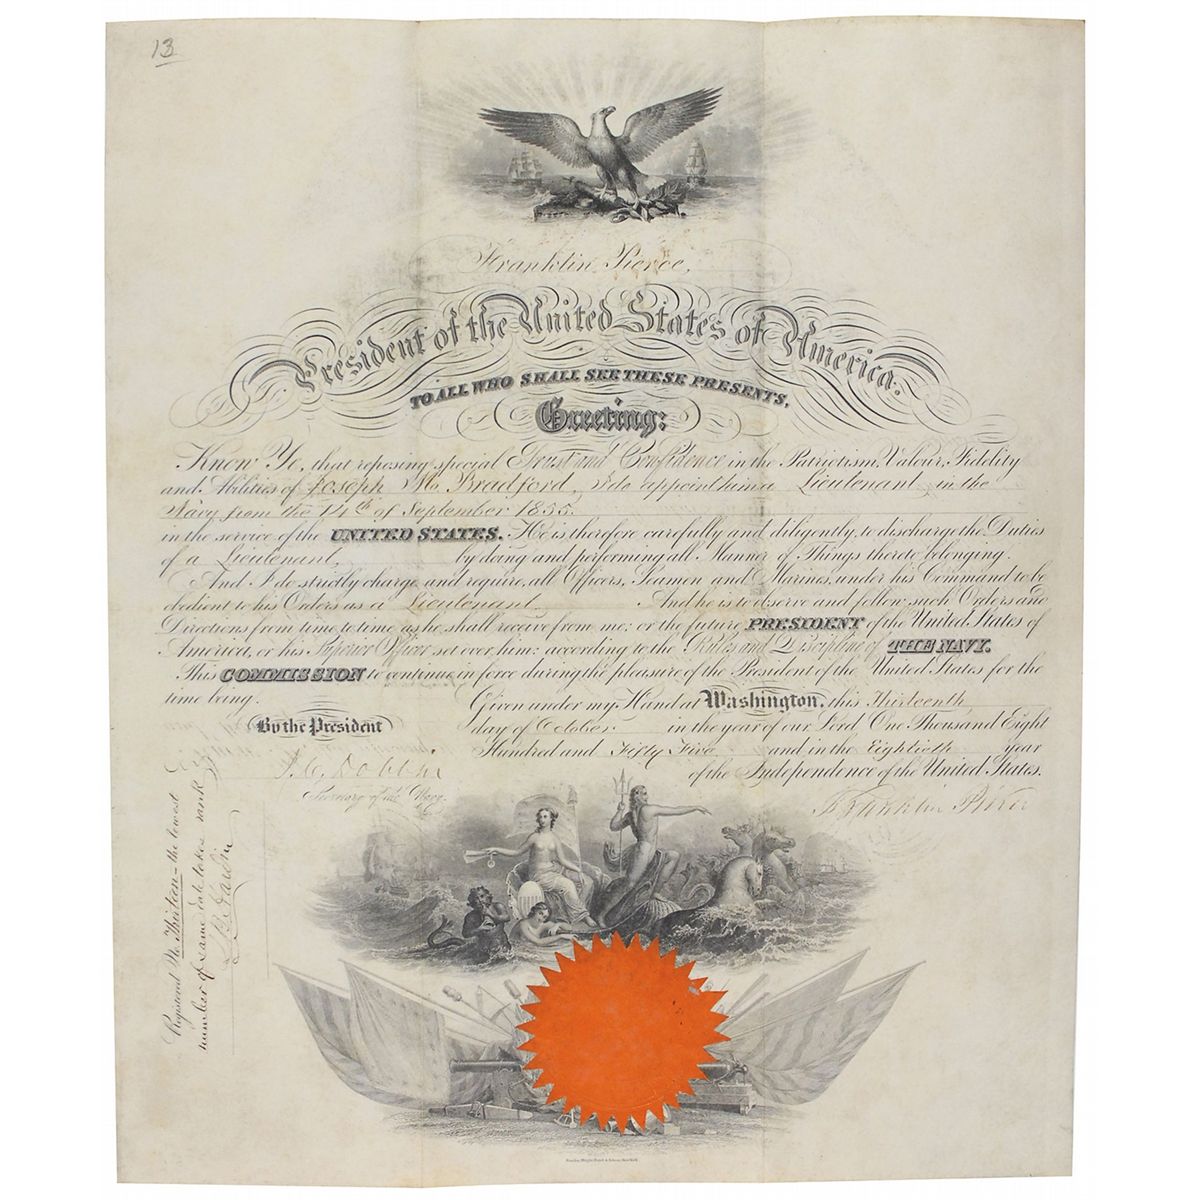 13
Franklin Pierce,
President of the United States of America.
TO ALL WHO SHALL SEE THESE PRESENTS,
Greeting:
Know Ye, that reposing special Trust and Confidence in the Patriotism, Valour, Fidelity
and Abilities of Joseph M. Bradford, I do appoint him a Lieutenant in the
Navy from the 14th of September 1855.
in the service of the UNITED STATES. He is therefore carefully and diligently to discharge the Duties
of a Lieutenant, by doing and performing all Manner of Things thereto belonging.
And I do strictly charge and require all Officers, Seamen and Marines, under his Command to be
obedient to his Orders as a Lieutenant. And he is to observe and follow such Orders and
Directions from time to time as he shall receive from me: or the future PRESIDENT of the United States of
America, or his Superior Officer set over him: according to the Rules and Discipline of THE NAVY.
This COMMISSION to continue in force during the pleasure of the President of the United States for the
time being.
Given under my Hand at Washington, this Thirteenth
day of October in the year of our Lord One Thousand Eight
Hundred and Fifty Five and in the Eightieth year
of the Independence of the United States.
By the President
Franklin Pierce
J. C. Dobbin
Secretary of the Navy.
Registered No Thirteen - the lowest
number of same date takes rank